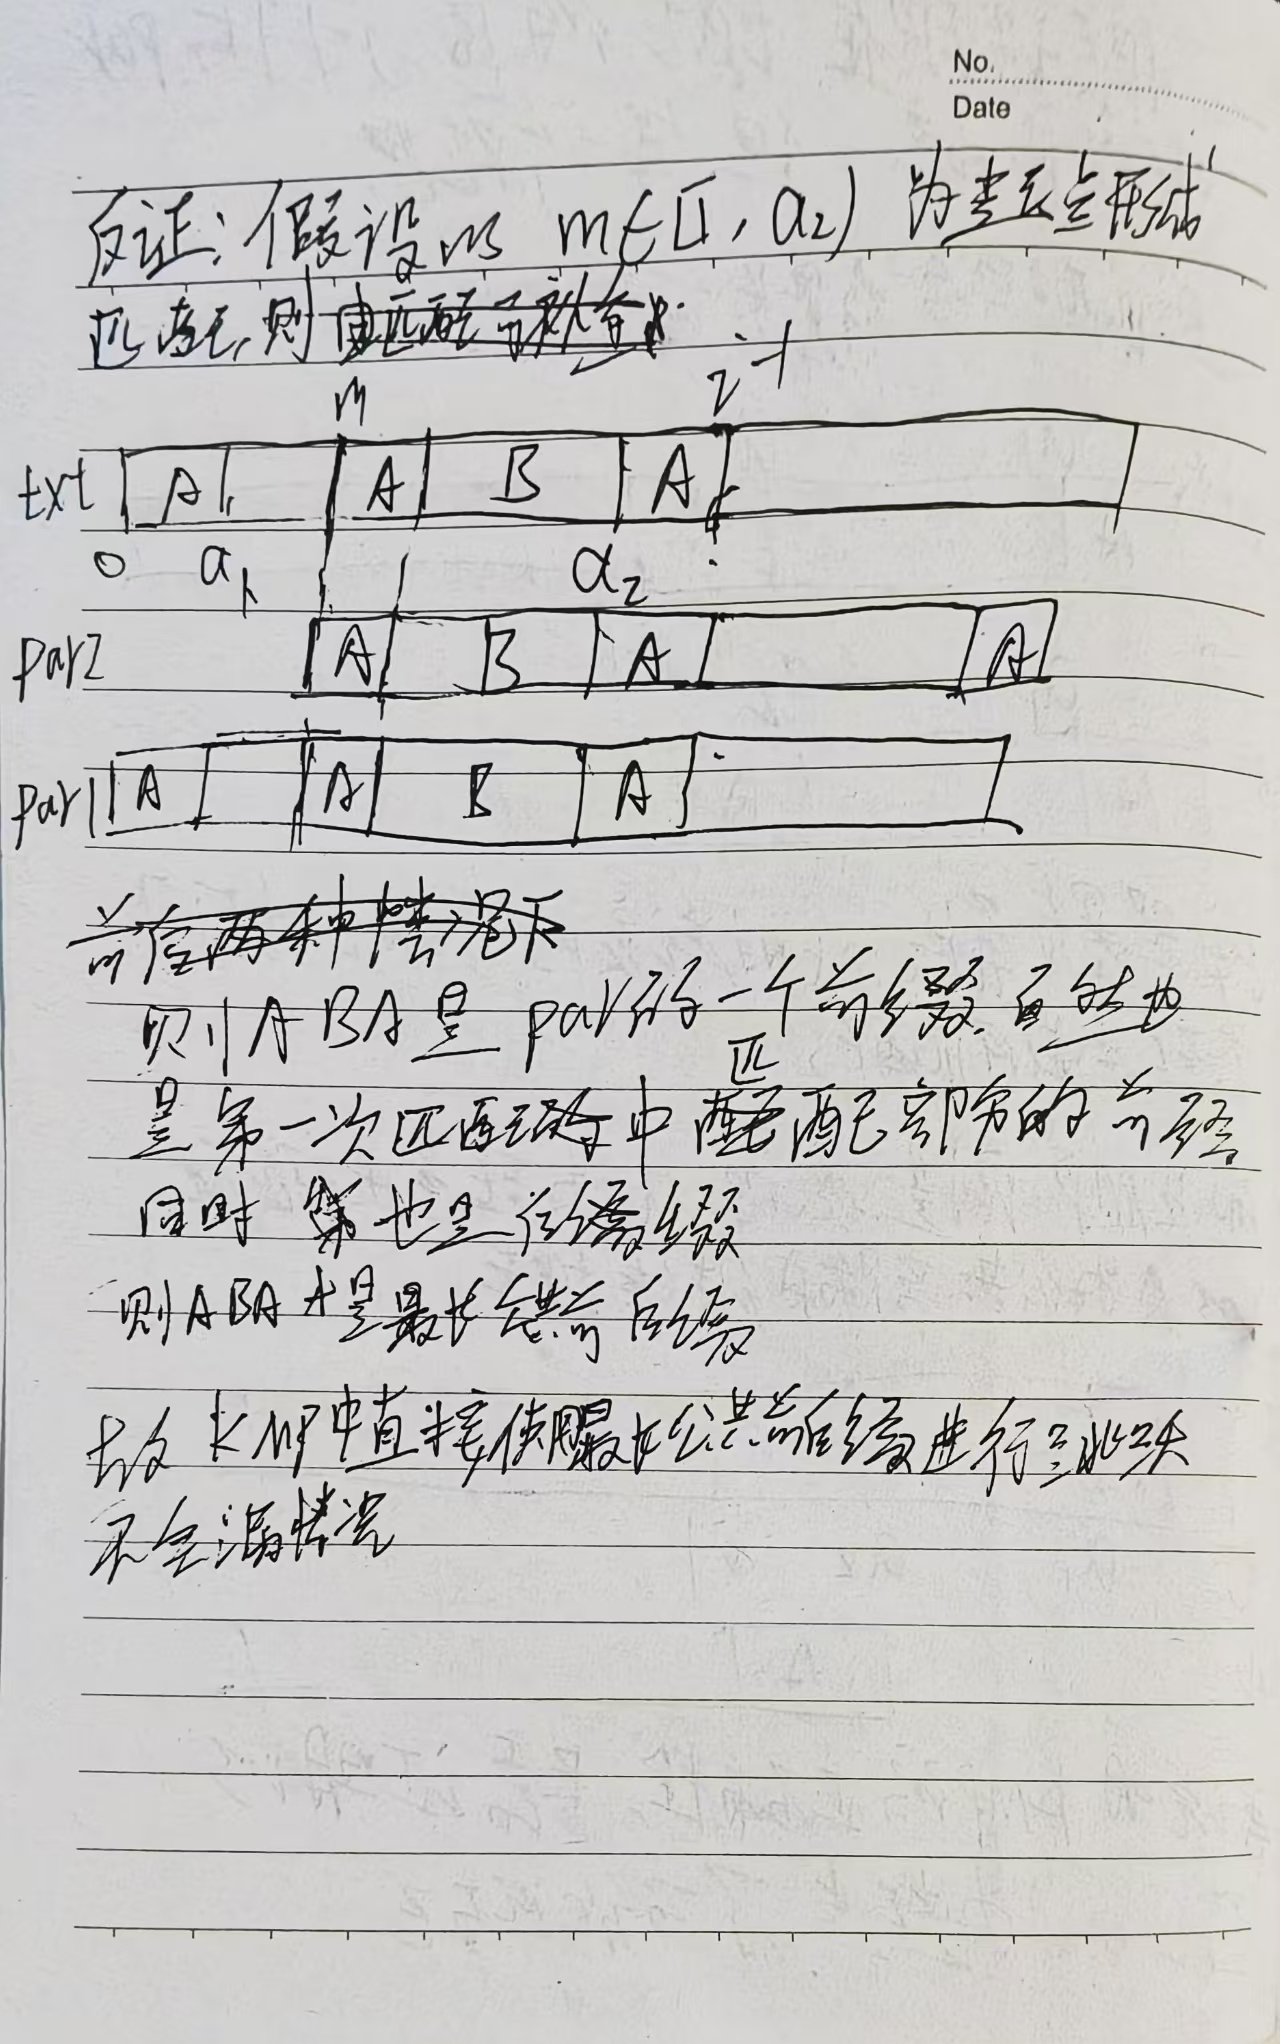 No.
Date
反证:假设以 m∈[1, a2) 为起点形成
匹配,则
m i-1
txt A A B A
0 a1 a2
par2 A B A A
par1 A A B A
前在两种情况下
则ABA是par的一个前缀,自然也
是第一次匹配中匹配部分的前缀
同时 也是后缀
则ABA才是最长公共前后缀
故KMP中直接使用最长公共前后缀进行跳
不会漏情况